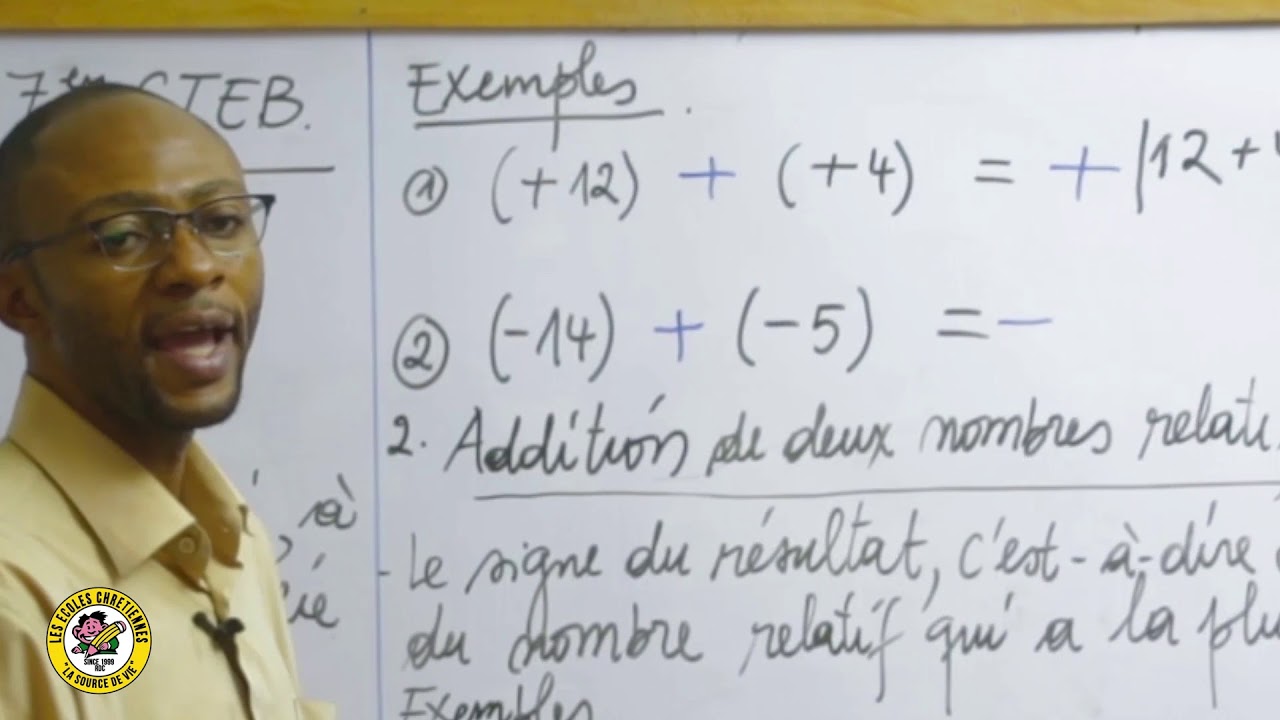 7em CTEB.
Exemples.
① (+12) + (+4) = + |12 +
② (-14) + (-5) = -
2. Addition de deux nombres relati
à
- Le signe du résultat, c'est-à-dire
du nombre relatif qui a la plu
Exemples
LES ECOLES CHRETIENNES
SINCE 1999
RDC
"LA SOURCE DE VIE"